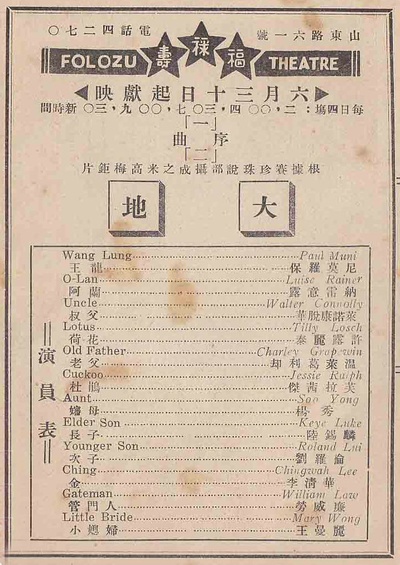 山東路六一號 電話四二七〇
福祿壽
FOLOZU THEATRE
六月三十日起獻映
每日四場:二,〇〇 四,三〇 七,〇〇 九,三〇 新時間
[一]
序曲
[二]
根據賽珍珠說部攝成之米高梅鉅片
大地
演員表
Wang Lung Paul Muni
王龍 保羅莫尼
O-Lan Luise Rainer
阿蘭 露意雷納
Uncle Walter Connolly
叔父 華脫康諾萊
Lotus Tilly Losch
荷花 泰麗露許
Old Father Charley Grapewin
老父 却利葛萊溫
Cuckoo Jessie Ralph
杜鵑 傑茜拉芙
Aunt Soo Yong
嬸母 楊秀
Elder Son Keye Luke
長子 陸錫麟
Younger Son Roland Lui
次子 劉羅倫
Ching Chingwah Lee
金 李清華
Gateman William Law
管門人 勞威廉
Little Bride Mary Wong
小媳婦 王曼麗